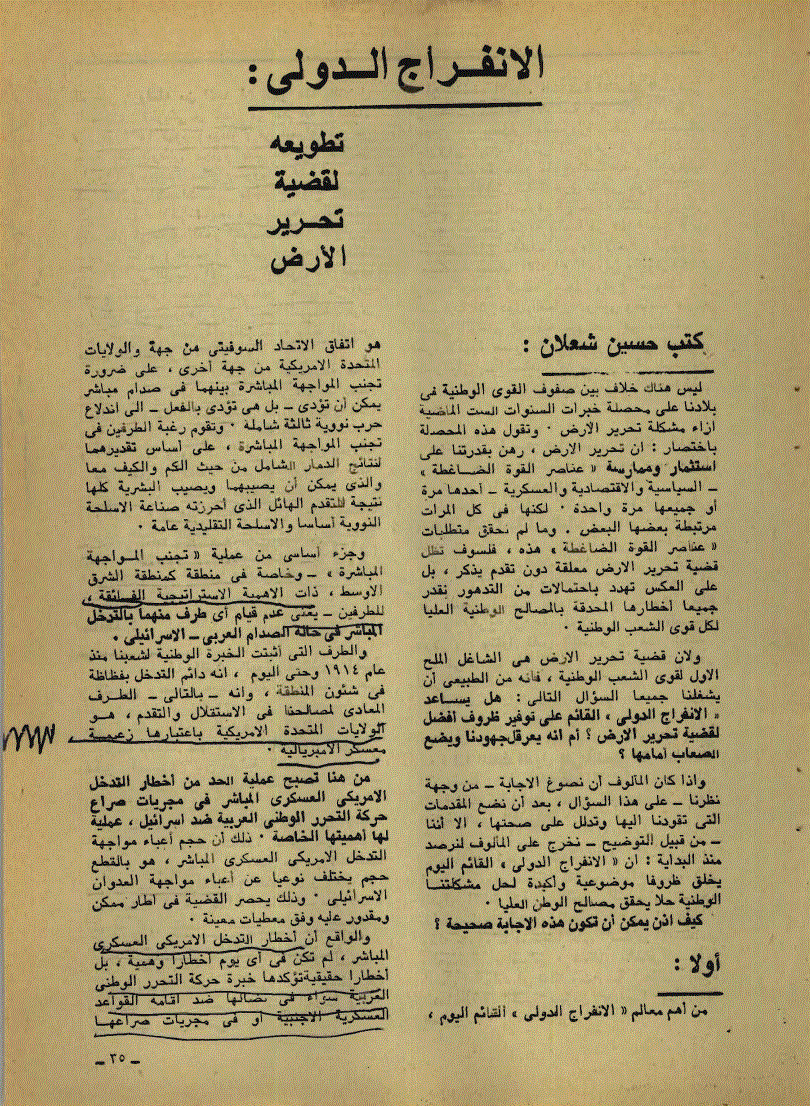 الانفـراج الـدولى :
تطويعه
لقضية
تحـرير
الأرض
كتب حسين شعلان :
ليس هناك خلاف بين صفوف القوى الوطنية فى
بلادنا على محصلة خبرات السنوات الست الماضية
ازاء مشكلة تحرير الارض · وتقول هذه المحصلة
باختصار : ان تحرير الارض ، رهن بقدرتنا على
استثمار وممارسة « عناصر القوة الضـاغطة »
ـ السياسية والاقتصادية والعسكرية ـ أحدها مرة
أو جميعها مرة واحدة · لكنها فى كل المرات
مرتبطة بعضها البعض . وما لم تحقق متطلبات
« عناصر القوة الضاغطة » هذه ، فلسوف تظل
قضية تحرير الارض معلقة دون تقدم يذكر ، بل
على العكس تهدد باحتمالات من التدهور نقدر
جميعا أخطارها المحدقة بالصالح الوطنية العليا
لكل قوى الشعب الوطنية ·
ولان قضية تحرير الارض هى الشاغل الملح
الاول لقوى الشعب الوطنية ، فانه من الطبيعى أن
يشغلنا جميعا السؤال التالى : هل يسـاعد
« الانفراج الدولى ، القائم على توفير ظروف أفضل
لقضية تحرير الارض ؟ أم انه يعرقل جهودنا ويضع
الصعاب أمامها ؟
واذا كان المألوف أن نصوغ الاجابة ـ من وجهة
نظرنا ـ على هذا السؤال ، بعد أن نضع المقدمات
التى تقودنا اليها وتدلل على صحتها ، الا أننا
ـ من قبيل التوضيح ـ نخرج على المألوف لنرصد
منذ البداية : ان « الانفراج الدولى ، القائم اليوم
يخلق ظروفا موضوعية وأكيدة لحل مشكلتنـا
الوطنية حلا يحقق مصالح الوطن العليا ·
كيف اذن يمكن أن تكون هذه الاجابة صحيحة ؟
أولا :
من أهم معالم « الانفراج الدولى ، القائم اليوم ،
هو اتفاق الاتحاد السوفيتى من جهة والولايات
المتحدة الامريكية من جهة أخرى ، على ضرورة
تجنب المواجهة المباشرة بينهما فى صدام مباشر
يمكن أن تؤدى ـ بل هى تؤدى بالفعل ـ الى اندلاع
حرب نووية ثالثة شاملة · وتقوم رغبة الطرفين فى
تجنب المواجهة المباشرة ، على أساس تقديرهما
لنتائج الدمار الشامل من حيث الكم والكيف معا
والذى يمكن أن يصيبهما ويصيب البشرية كلها
نتيجة للتقدم الهائل الذى أحرزته صناعة الاسلحة
النووية أساسا والاسلحة التقليدية عامة ·
وجزء أساسى من عملية « تجنب المـواجهة
المباشرة » ـ وخاصة فى منطقة كمنطقة الشرق
الاوسط ، ذات الاهمية الاستراتيجية الفـائقة ،
للطرفين ـ يعنى عدم قيام أى طرف منهما بالتدخل
المباشر فى حالة الصدام العربى ـ الاسرائيلى .
والطرف التى أثبتت الخبرة الوطنية لشعبنا منذ
عام ١٩١٤ وحتى اليوم ، انه دائم التدخل بفظاظة
فى شئون المنطقة ، وانه ـ بالتالى ـ الطـرف
المعادى لمصالحنا فى الاستقلال والتقدم ، هـو
الولايات المتحدة الامريكية باعتبارها زعيمـة
معسكر الامبريالية ·
من هنا تصبح عملية الحد من أخطار التدخل
الامريكى العسكرى المباشر فى مجريات صراع
حركة التحرر الوطنى العربية ضد اسرائيل ، عملية
لها أهميتها الخاصة · ذلك أن حجم أعباء مواجهة
التدخل الامريكى العسكرى المباشر ، هو بالقطع
حجم يختلف نوعيا عن أعباء مواجهة العدوان
الاسرائيلى · وذلك يحصر القضية فى اطار ممكن
ومقدور عليه وفق معطيات معينة ·
والواقع أن أخطار التدخل الامريكى العسكرى
المباشر ، لم تكن فى أى يوم أخطارا وهمية ، بل
أخطارا حقيقية تؤكدها خبرة حركة التحرر الوطنى
العربية سواء فى نضالها ضد اقامة القواعد
العسكرية الاجنبية أو فى مجريات صراعهـا
ـ ٣٥ ـ